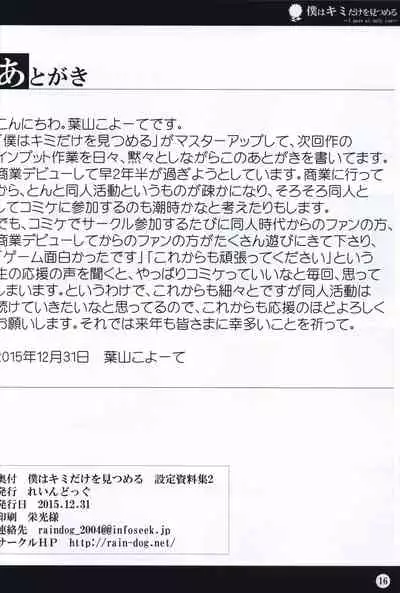 僕はキミだけを見つめる
～I gaze at only you～
あとがき
こんにちわ。葉山こよーてです。
「僕はキミだけを見つめる」がマスターアップして、次回作の
インプット作業を日々、黙々としながらこのあとがきを書いてます。
商業デビューして早2年半が過ぎようとしています。商業に行って
から、とんと同人活動というものが疎かになり、そろそろ同人と
してコミケに参加するのも潮時かなと考えたりもします。
でも、コミケでサークル参加するたびに同人時代からのファンの方、
商業デビューしてからのファンの方がたくさん遊びにきて下さり、
「ゲーム面白かったです」「これからも頑張ってください」という
生の応援の声を聞くと、やっぱりコミケっていいなと毎回、思って
しまいます。というわけで、これからも細々とですが同人活動は
続けていきたいなと思ってるので、これからも応援のほどよろしく
お願いします。それでは来年も皆さまに幸多いことを祈って。
2015年12月31日　葉山こよーて
奥付　僕はキミだけを見つめる　設定資料集2
発行　れいんどっぐ
発行日　2015.12.31
印刷　栄光様
連絡先　raindog_2004@infoseek.jp
サークルHP　http://rain-dog.net/
16